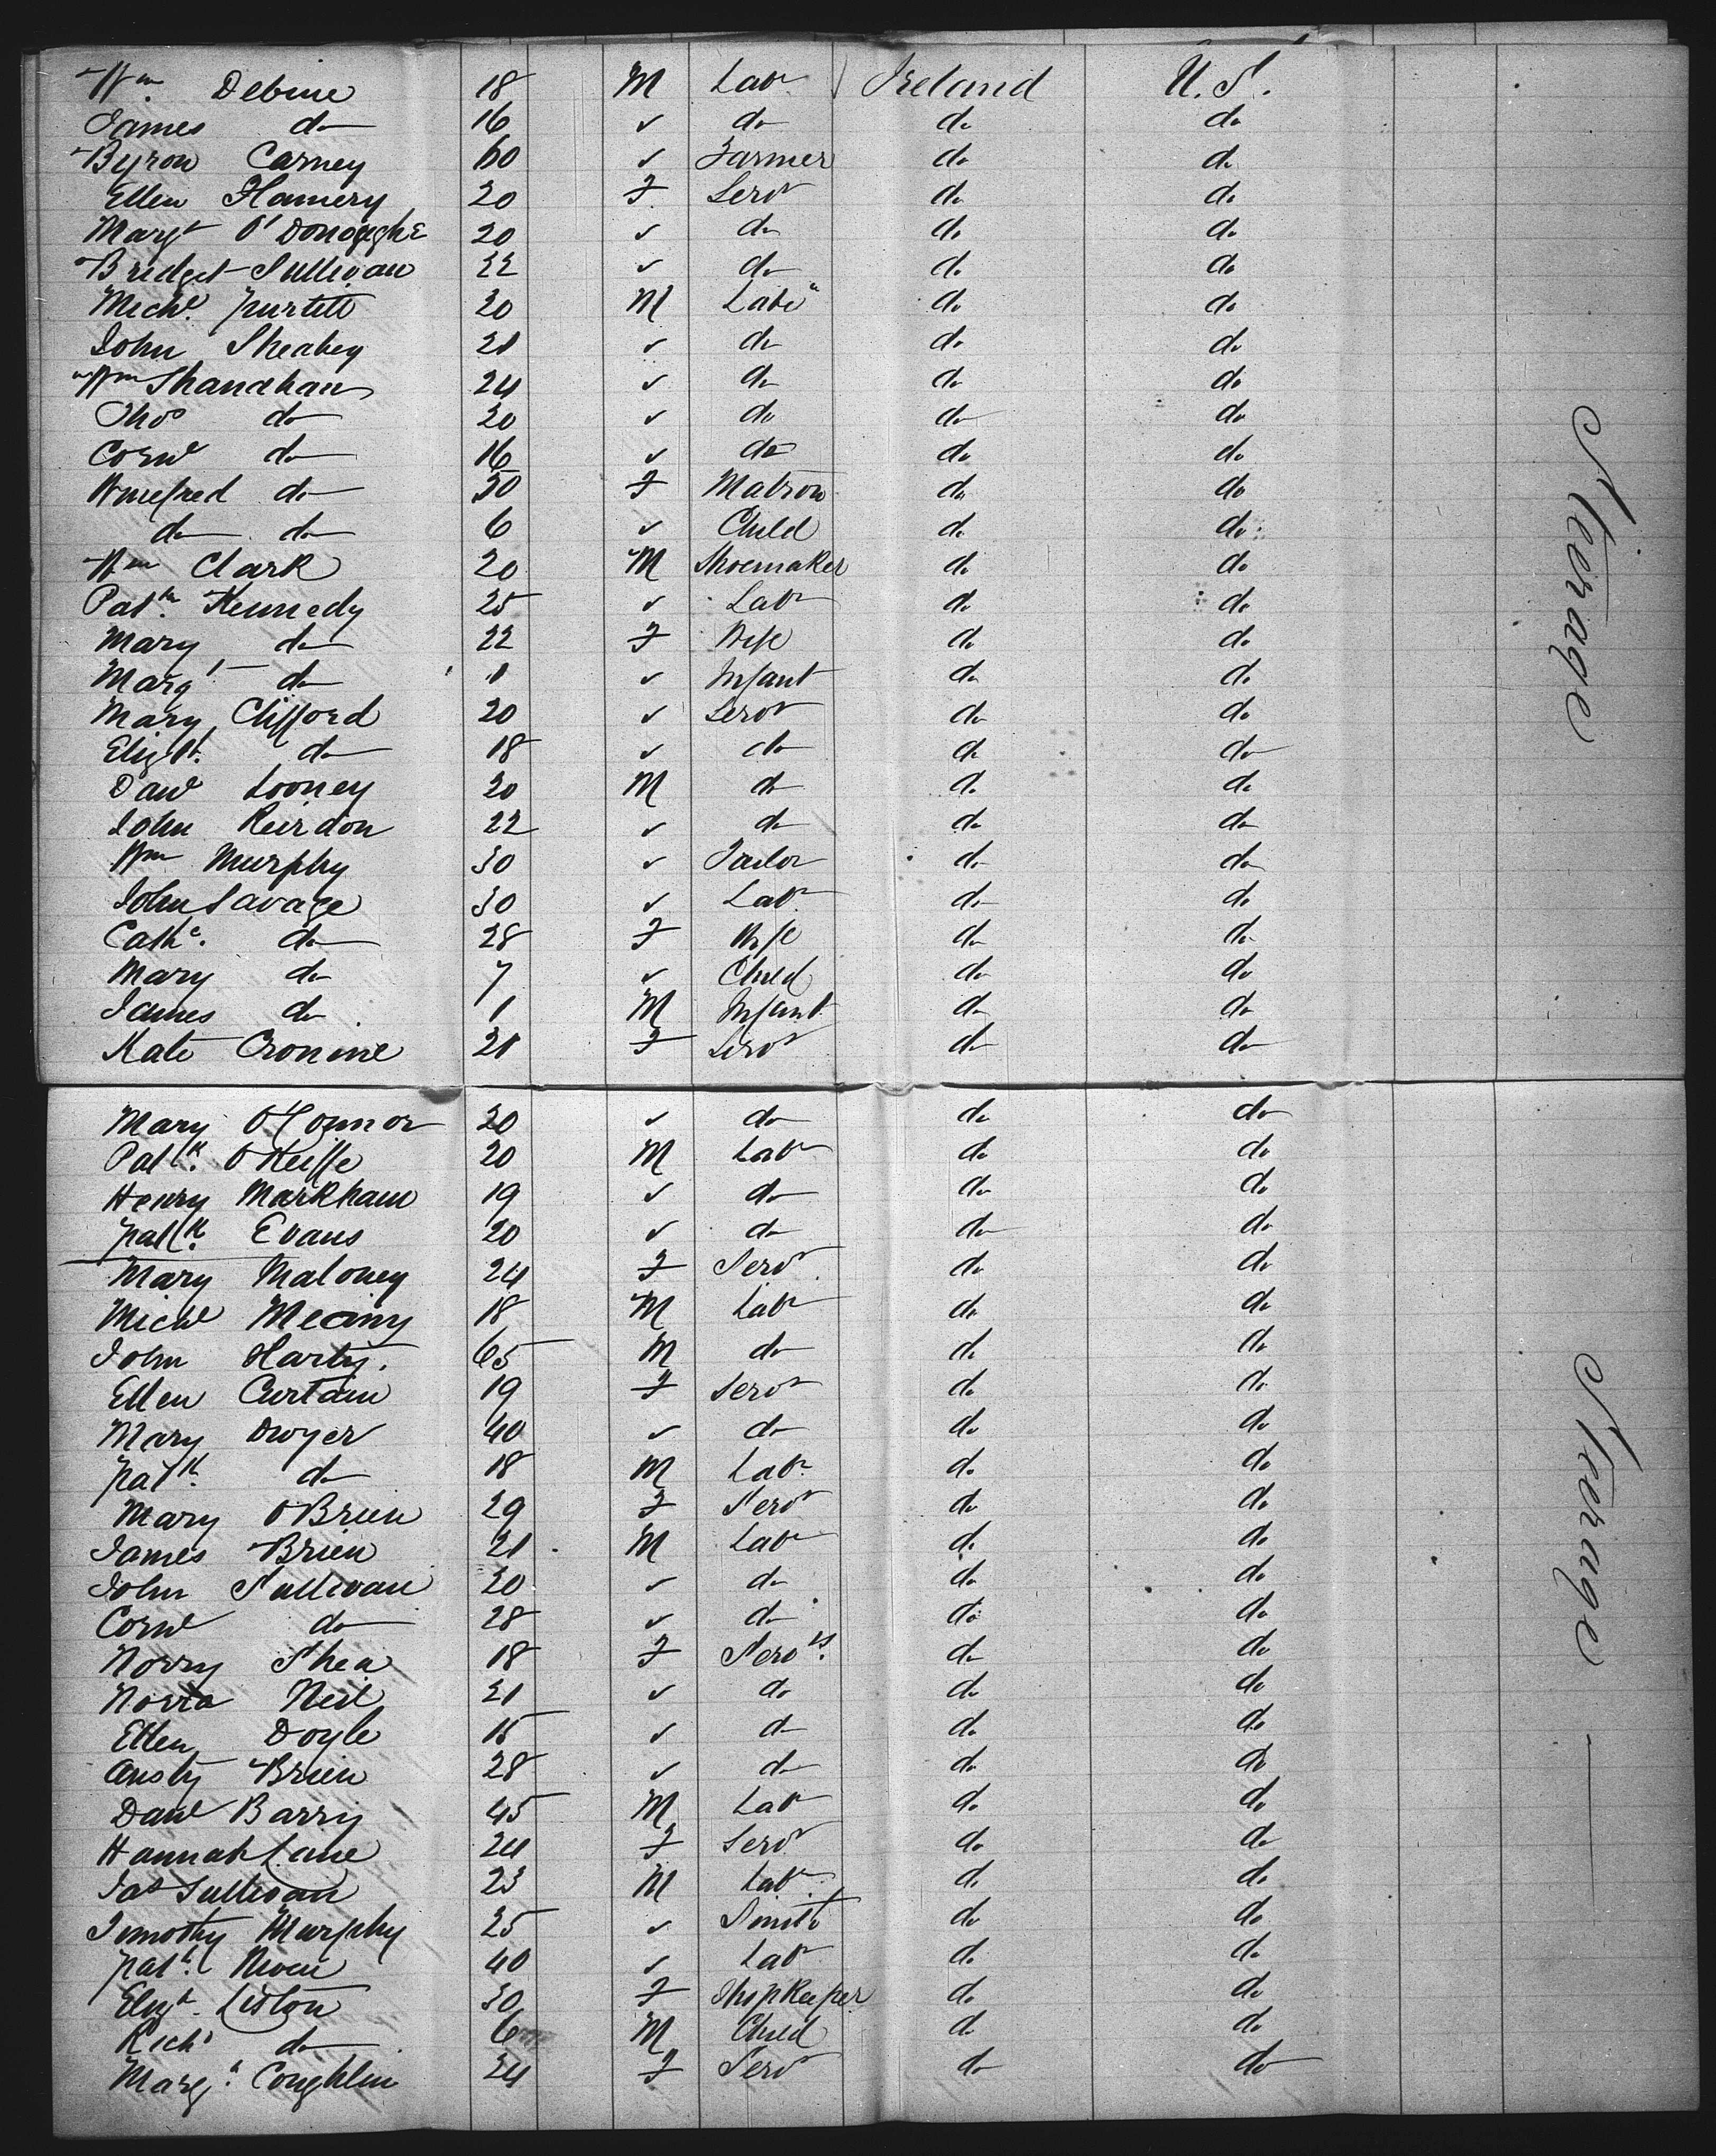 Wm Debine 18 M Labr Ireland U.S.
James do 16 ✓ do do do
Byron Carney 60 ✓ Farmer do do
Ellen Flamery 20 F. Servt do do
Margt O'Donoghe 20 ✓ do do do
Bridget Sullivan 22 ✓ do do do
Michl. Purtill 20 M Labr do do
John Sheahey 21 ✓ do do do
Wm Shanahan 24 ✓ do do do
Thos do 20 ✓ do do do
Cornl do 16 ✓ do do do
Winefred do 50 F Matron do do
do do 6 ✓ Child do do
Wm Clark 20 M Shoemaker do do
Patk. Kennedy 25 ✓ Labr do do
Mary do 22 F Wife do do
Margt do 1 ✓ Infant do do
Mary Clifford 20 ✓ Servt do do
Elizbt. do 18 ✓ do do do
Danl Looney 20 M do do do
John Reirdon 22 ✓ do do do
Wm Murphy 30 ✓ Tailor do do
John Savage 30 ✓ Labr do do
Cathe. do 28 F Wife do do
Mary do 7 ✓ Child do do
James do 1 M Infant do do
Kate Cronine 21 F Servt do do
Steirage
Mary O'Connor 20 ✓ do do do
Patk. O'Keiffe 20 M Labr do do
Henry Markham 19 ✓ do do do
Patk. Evans 20 ✓ do do do
Mary Maloney 24 F Servt do do
Michl Meany 18 M Labr do do
John Harty. 65 M do do do
Ellen Curtain 19 F Servt do do
Mary Dwyer 40 ✓ do do do
Patk. do 18 M Labr. do do
Mary O'Brien 29 F Servt do do
James Brien 21 M Labr do do
John Sullivan 30 ✓ do do do
Cornl do 28 ✓ do do do
Norry Shea 18 F Servts. do do
Norra Neil 21 ✓ do do do
Ellen Doyle 15 ✓ do do do
Ansty Brien 28 ✓ do do do
Danl Barry 45 M Labr do do
Hannah Lane 24 F Servt do do
Jas Sullivan 23 M Labr. do do
Timothy Murphy 25 ✓ Smith do do
Patk. 40 ✓ Labr do do
Elizt. Liston 30 F Shopkeeper do do
Richd do 6 M Child do do
Margt. Coughlin 24 F Servt do do
Steerage